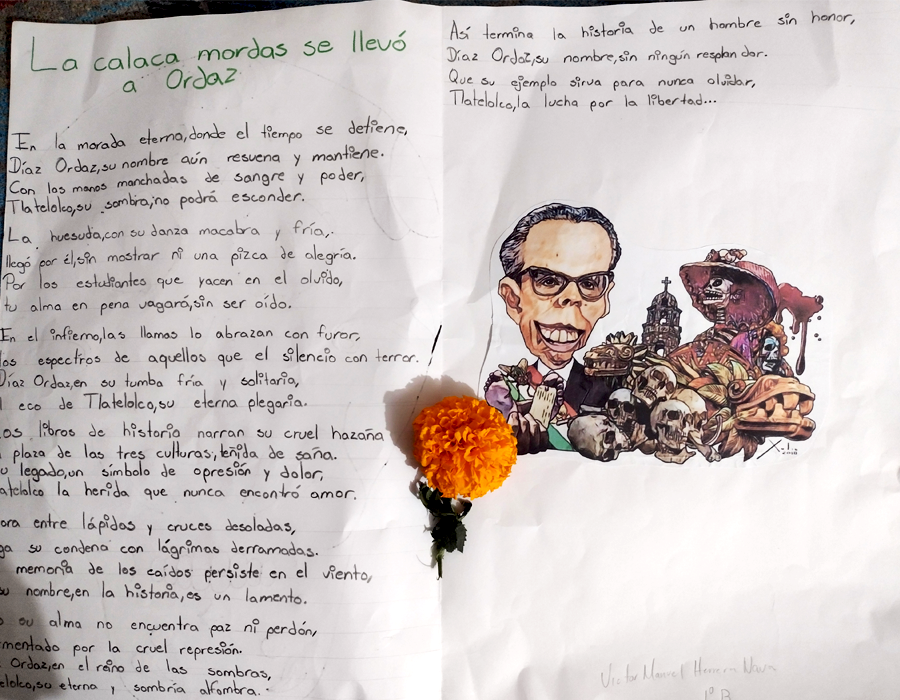 La calaca mordas se llevó
a Ordaz
En la morada eterna,donde el tiempo se detiene,
Díaz Ordaz,su nombre aún resuena y mantiene.
Con los manos manchadas de sangre y poder,
Tlatelolco,su sombra,no podrá esconder.
La huesuda,con su danza macabra y fría,
llegó por él,sin mostrar ni una pizca de alegría.
Por los estudiantes que yacen en el olvido,
tu alma en pena vagará,sin ser oído.
En el infierno,las llamas lo abrazan con furor,
los espectros de aquellos que el silencio con terror.
Díaz Ordaz,en su tumba fría y solitaria,
l eco de Tlatelolco,su eterna plegaria.
os libros de historia narran su cruel hazaña
plaza de las tres culturas,teñida de saña.
u legado,un símbolo de opresión y dolor,
atelolco la herida que nunca encontró amor.
ora entre lápidas y cruces desoladas,
ga su condena con lágrimas derramadas.
memoria de los caídos persiste en el viento,
su nombre,en la historia,es un lamento.
o su alma no encuentra paz ni perdón,
mentado por la cruel represión.
Ordaz,en el reino de las sombras,
elolco,su eterna y sombría alfombra.
Así termina la historia de un hombre sin honor,
Díaz Ordaz,su nombre,sin ningún resplandor.
Que su ejemplo sirva para nunca olvidar,
Tlatelolco,la lucha por la libertad...
Victor Manuel Herrera Nava
1° B